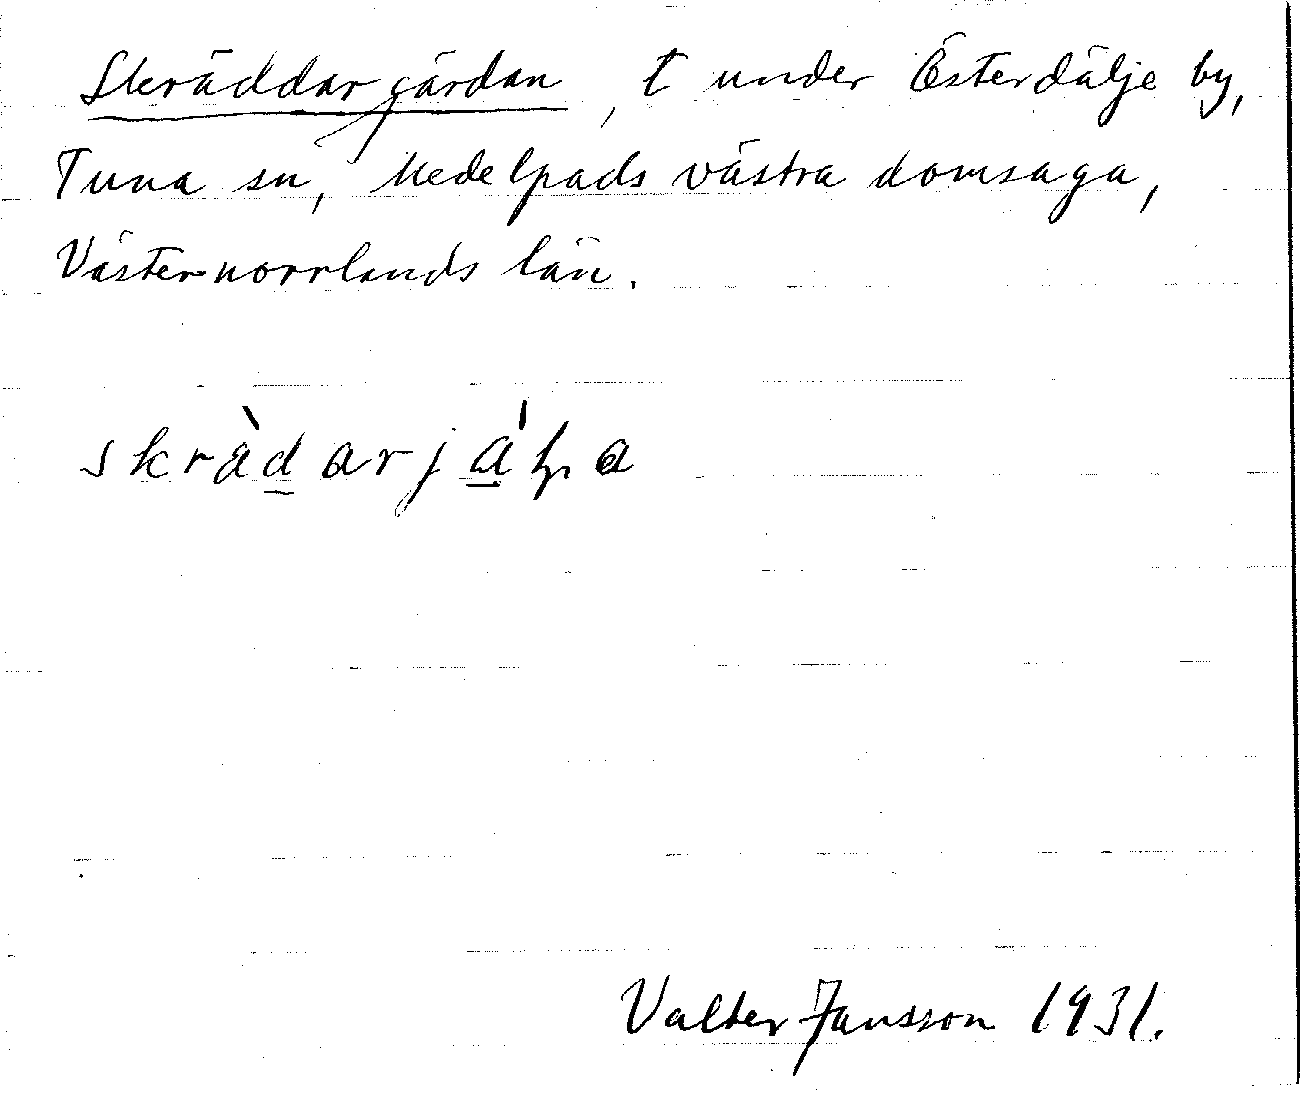 Skräddargärdan, t under Österdälje by,
Tuna sn, Medelpads västra domsaga,
Västernorrlands län.
skràdarjáḷa
Valter Jansson 1931.